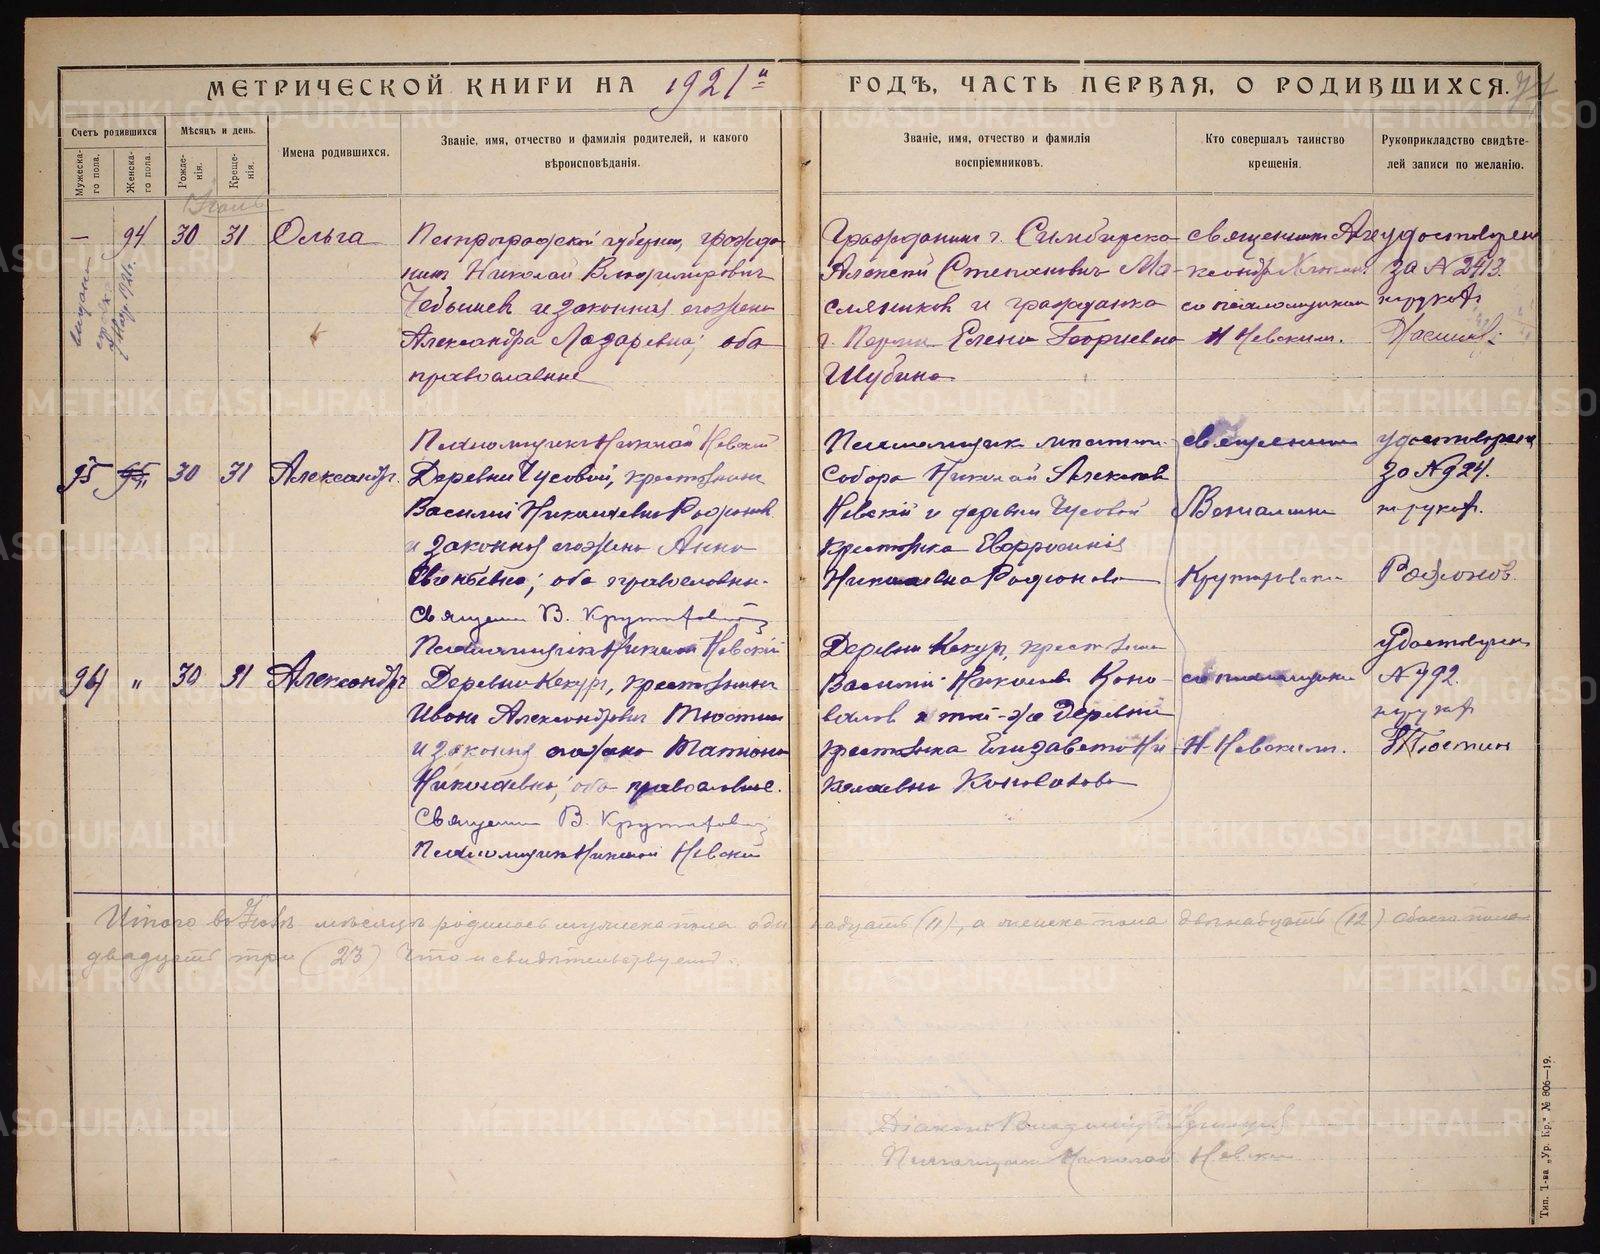 МЕТРИЧЕСКОЙ КНИГИ НА 1921й ГОДЪ, ЧАСТЬ ПЕРВАЯ, О РОДИВШИХСЯ.
Счетъ родившихся
Мужеска-го пола.
Женска-го пола.
Мѣсяцъ и день.
Рожде-нія.
Креще-нія.
Имена родившихся.
Званіе, имя, отчество и фамилія родителей, и какого
вѣроисповѣданія.
Званіе, имя, отчество и фамилія
воспріемниковъ.
Кто совершалъ таинство
крещенія.
Рукоприкладство свидѣте-
лей записи по желанію.
— 94 30 31 Ольга
Петроградской губернии, гражда-
нин Николай Владимирович
Чебышев и законная его жена
Александра Лазаревна; оба
православные
Гражданин г. Симбирска
Алексей Степанович Ма-
сляников и гражданка
г. Перми Елена Георгиевна
Шубина
священник
со псаломщиком
Н Невским.
за № 2413.
Псаломщик Николай Невский
95 30 31 Александр.
Деревни Чусовой, крестьянин
Василий Николаевич Родионов
и законная его жена Анна
оба православны.
Священ В. Крутаровский
Псаломщик Николай Невский
Псаломщик
Собора Николай
Невский и деревни Чусовой
крестьянка Евфросиния
Николаевна Родионова
священник
Вениамин
удостоверен
за № 924.
Родионов.
96 " 30 31 Александр
Деревни Кекур, крестьянин
Иван Александрович Тюстин
и законная его жена Татиана
Николаевна; оба православные.
Священ В. Крутаровский
Псаломщик Николай Невский
Деревни Кекур, крестьянин
Василий Николаев Коно-
валов и той-же деревни
крестьянка Елизавета Ни-
колаевна Коновалова
со псаломщиком
Н. Невским.
Удостоверен
№ 792.
Тюстин
Итого во Іюлѣ мѣсяцѣ родилось мужеска пола одиннадцать (11), а женска пола двенадцать (12) обоего пола
двадцать три (23) Что и свидѣтельствуем.
Псаломщик Николай Невский
Тип. Т-ва „Ур. Кр." № 806—19.
METRIKI.GASO-URAL.RU